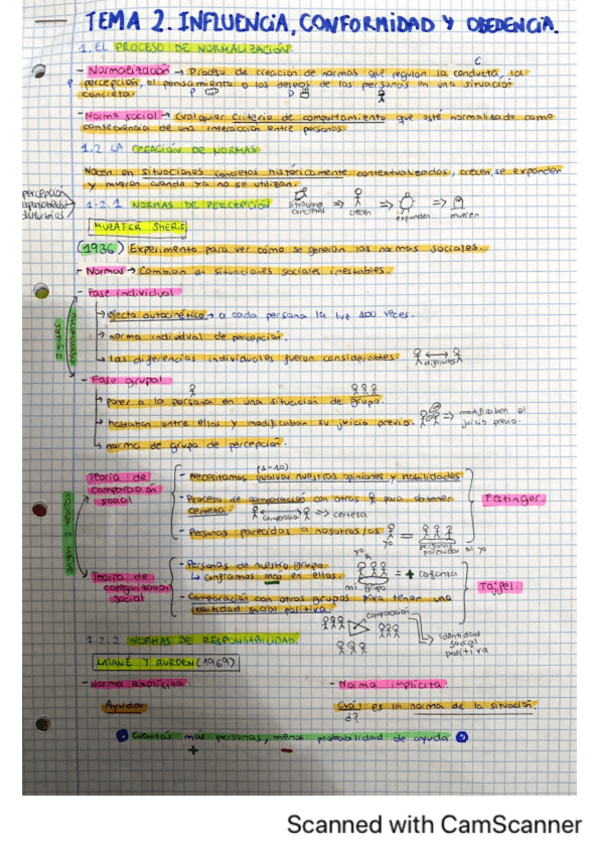 TEMA 2. INFLUENCIA, CONFORMIDAD Y OBEDENCIA.
1. EL PROCESO DE NORMALIZACIÓN.
- Normalización → Proceso de creación de normas que regulan la conducta, la
percepción, el pensamiento o los deseos de las personas en una situación
concreta.
C
P
P
D
- Norma social → Cualquier criterio de comportamiento que esté normalizado como
consecuencia de una interacción entre personas.
1.2 LA CREACIÓN DE NORMAS.
Nacen en situaciones concretas históricamente contextualizadas, crecen, se expanden
y mueren cuando ya no se utilizan.
percepción
responsabilidad
1.2.1 NORMAS DE PERCEPCIÓN
situaciones concretas ⇒ crecen ⇒ expanden ⇒ mueren
MUZAFER SHERIF
(1936) Experimento para ver cómo se generan las normas sociales.
- Normas → Cambian en situaciones sociales inestables.
- Fase individual
→ efecto autocinético → a cada persona la luz 100 veces.
→ norma individual de percepción.
→ las diferencias individuales fueron considerables
- Fase grupal
→ poner a la persona en una situación de grupo.
→ hablaban entre ellos y modificaban su juicio previo. ⇒ modificaban el juicio previo.
→ norma de grupo de percepción.
Teoría de comparación social
(1-10)
- Necesitamos evaluar nuestras opiniones y habilidades
- Proceso de comparación con otros para obtener
certeza. ⇒ certeza
- Personas parecidas a nosotros/as
yo = personas parecidas al yo
Fatinger.
Teoría de categorización social
- Personas de nuestro grupo
↳ Confiamos más en ellos.
yo
mi grupo
= + confianza
- Comparación con otros grupos para tener una
identidad social positiva.
Tajfel.
comparación
identidad social positiva
1.2.2 NORMAS DE RESPONSABILIDAD
LATANÉ Y RODEN (1969)
- Norma explícita
- Norma implícita.
Ayudar
Cuál es la norma de la situación.
¿?
Cuantas más personas, menos probabilidad de ayuda
+ -
Scanned with CamScanner